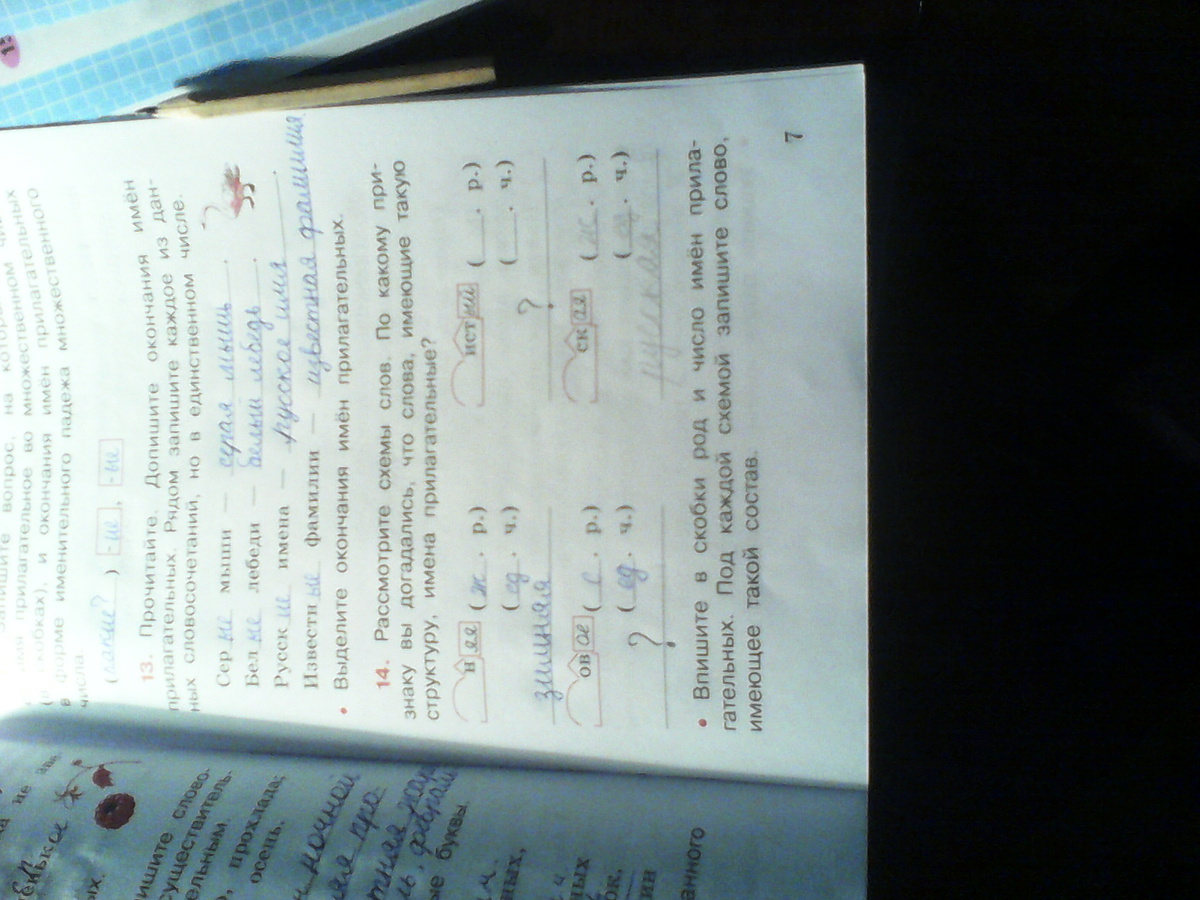 запишите вопрос, на который
имя прилагательное во множественном
скобках), и окончания имён прилагательных
в форме именительного падежа множественного
числа
(какие?) -ие, -ые
13. Прочитайте. Допишите окончания имён
прилагательных. Рядом запишите каждое из дан-
ных словосочетаний, но в единственном числе.
Сер ые мыши – серая мышь.
Бел ые лебеди – белый лебедь.
Русск ие имена – русское имя.
Известн ые фамилии – известная фамилия.
• Выделите окончания имён прилагательных.
14. Рассмотрите схемы слов. По какому при-
знаку вы догадались, что слова, имеющие такую
структуру, имена прилагательные?
н (ж. р.) ист (. р.)
(ед. ч.) (. ч.)
зимняя ?
ов ое (с. р.) ск ая (ж. р.)
? (ед. ч.) (ед. ч.)
русская
• Впишите в скобки род и число имён прила-
гательных. Под каждой схемой запишите слово,
имеющее такой состав.
7
13
не
ишите слово-
существитель-
ельным.
, прохлада;
осень.
ночной
добрый
ые буквы.
ных,
ных
ок.
анного